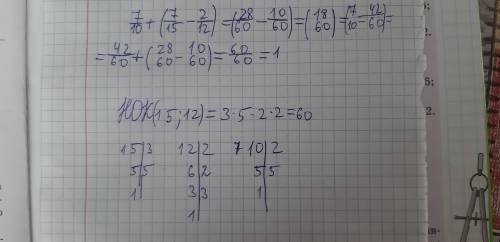 7/10 + (7/15 - 2/12) = (28/60 - 10/60) = (18/60) = (7/10 = 42/60) =
= 42/60 + (28/60 - 10/60) = 60/60 = 1
НОК(15;12) = 3·5·2·2 = 60
15|3 12|2 7 10|2
5|5 6|2 5|5
1| 3|3 1|
1|